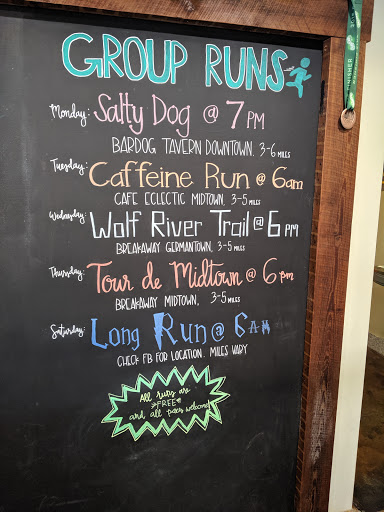 GROUP RUNS
Monday: Salty Dog @ 7 PM
BARDOG TAVERN DOWNTOWN. 3-6 MILES
Tuesday: Caffeine Run @ 6am
CAFE ECLECTIC MIDTOWN. 3-5 MILES
Wednesday: Wolf River Trail @ 6 PM
BREAKAWAY GERMANTOWN, 3-5 MILES
Thursday: Tour de Midtown @ 6 pm
BREAKAWAY MIDTOWN, 3-5 MILES
Saturday: Long Run @ 6AM
CHECK FB FOR LOCATION. MILES VARY
All runs are
*FREE*
and all paces welcome!
FINISHER